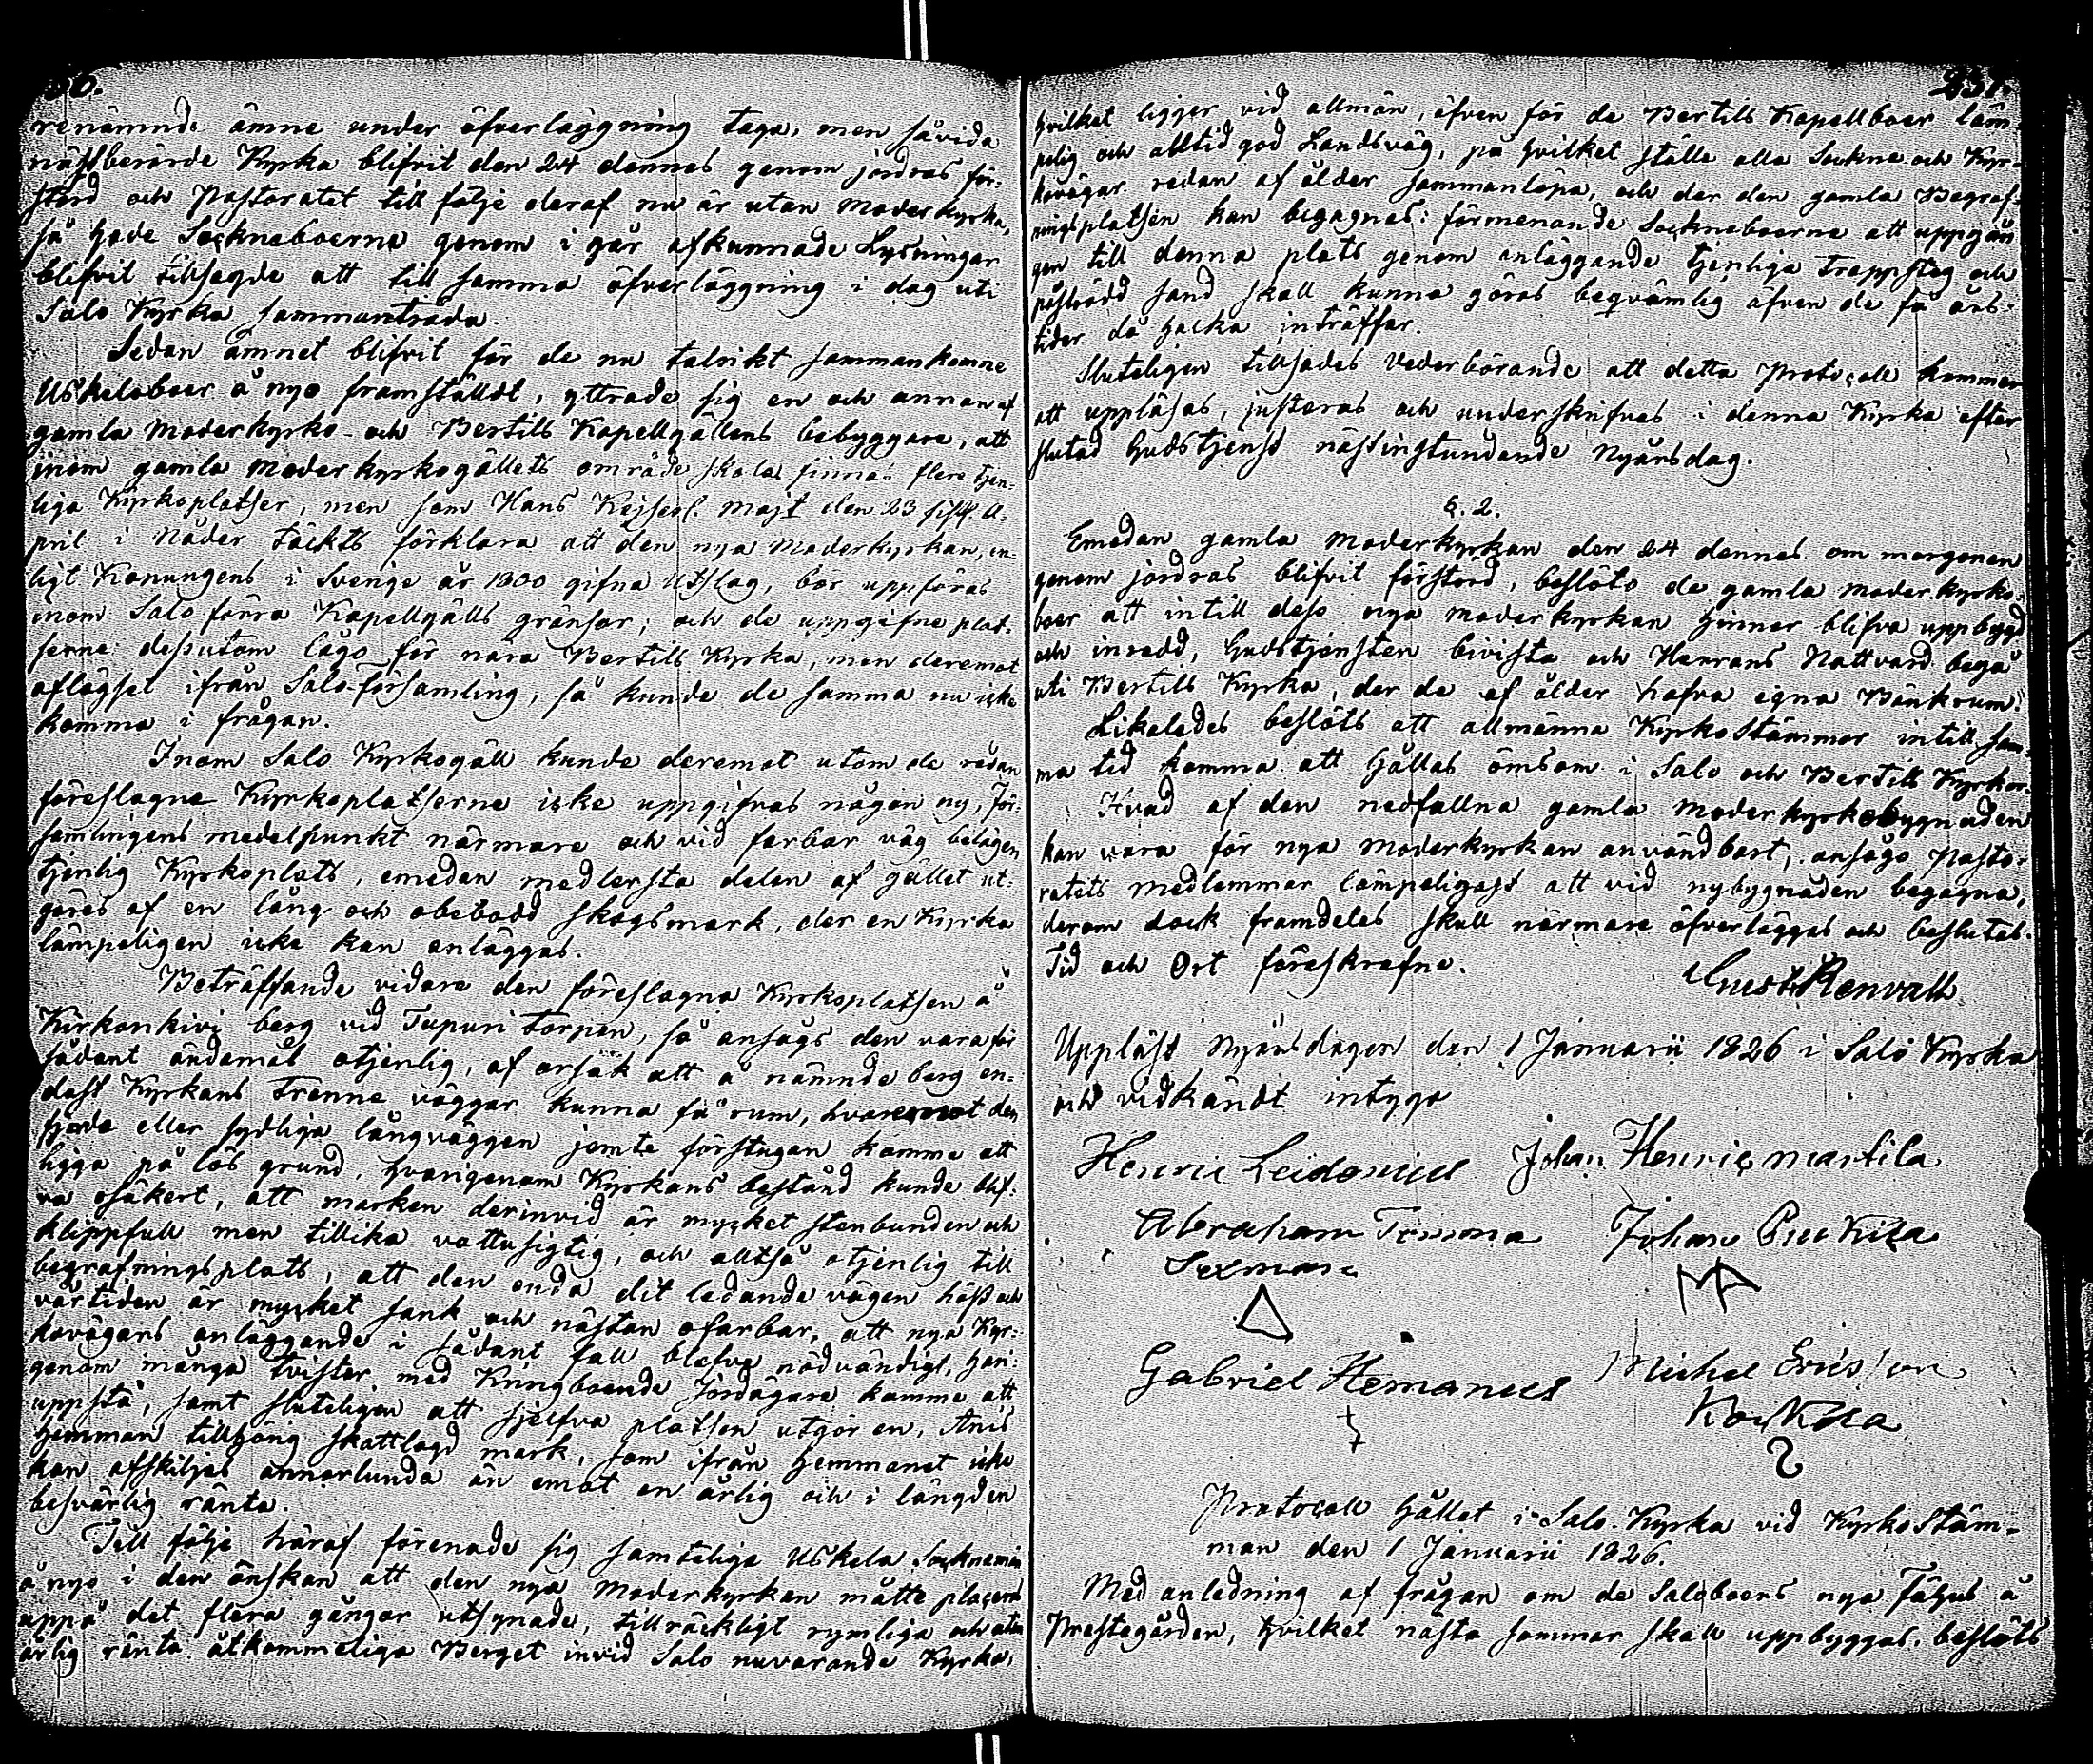 renämnde ämne under öfverläggning taga, men såvida
näs̃tberörde Kyrka blifvit den 24 dennes genom jordras för-
störd och Pastoratet till följe deraf nu är utan Moderkyrka,
så hade Sockneboerne genom i går afkunnade Lysningar
blifvit tillsagde att till samma öfverläggning i dag uti
Salo Kyrka sammanträda.
Sedan ämnet blifvit för de nu talrikt sammankomne
Uskelaboer å nyo framstäldt, yttrade sig en och annan af
gamla Moderkyrko- och Bertils Kapellgällens bebyggare, att
inom gamla Moderkyrkogällets område skola finnas flere tjen-
liga Kyrkoplatser, men som Hans Kejserl. Majt den 23 sistl. A-
pril i Nåder täckts förklara att den nya Moderkyrkan, en-
ligt Konungens i Sverige år 1800 gifna Utslag, bör uppföras
inom Salo förra Kapellgälls gränsor; och de uppgifne plat-
serne dessutom lågo för nära Bertils Kyrka, men deremot
aflägset ifrån Salo församling, så kunde de samma nu icke
komma i frågan.
Inom Salo Kyrkogäll kunde deremot utom de redan
föreslagne Kyrkoplatserne icke uppgifvas någon ny, för-
samlingens medelpunkt närmare och vid farbar väg belägen
tjenlig Kyrkoplats, emedan medlersta delen af gället ut-
göres af en lång och obebodd skogsmark, der en Kyrka
lämpeligen icke kan anläggas.
Beträffande vidare den föreslagna Kyrkoplatsen å
Kirkonkivi berg vid Tupuri torpen, så ansågs den vara för
sådant ändamål otjenlig, af orsak att å nämnde berg en-
dast Kyrkans trenne väggar kunna få rum, hvaremot den
fjerde eller sydliga långväggen jemte förstugan komme att
ligga på lös grund, hvarigenom Kyrkans bestånd kunde blif-
va osäkert, att marken derinvid är mycket stenbunden och
klippfull men tillika vattusigtig, och alltså otjenlig till
begrafningsplats, att den enda dit ledande vägen höst och
vårtiden är mycket sank och nästan ofarbar, att nya Kyr-
kovägars anläggande i sådant fall blefve nödvändigt, hvari-
genom många tvister med Kringboende Jordägare komme att
uppstå, samt sluteligen att sjelfva platsen utgör en, Anis
hemman tillhörig skattlagd mark, som ifrån hemmanet icke
kan afskiljas annorlunda än emot en årlig och i längden
besvärlig ränta.
Till följe häraf förenade sig samtelige Uskela Socknemän
å nyo i den önskan att den nya Moderkyrkan måtte placeras
uppå det flera gångor utsynade, tillräckligt rymliga och utan
årlig ränta åtkommeliga Berget invid Salo nuvarande Kyrka,
hvilket ligger vid allmän, äfven för de Bertils Kapellboer läm-
pelig och alltid god Landsväg, på hvilket ställe alla Sockne och Kyr-
kovägar redan af ålder sammanlöpa, och der den gamla Begraf-
ningsplatsen kan begagnas: förmenande Sockneboerne att uppgån-
gen till denna plats genom anläggande tjenliga trappsteg och
påströdd sand skall kunna göras beqvämlig äfven de få års-
tider då halka inträffar.
Sluteligen tillsades vederbörande att detta Protocoll kommer
att uppläsas, justeras och underskrifvas i denna Kyrka efter
slutad Gudstjenst nästinstundande Nyårsdag.
§. 2.
Emedan gamla Moderkyrkan den 24 dennes om morgonen
genom jordras blifvit förstörd, beslöto de gamla Moderkyrko-
boer att intill dess nya Moderkyrkan hinner blifva uppbygd
och inredd, Gudstjensten bivista och Herrans Nattvard begå
uti Bertils Kyrka, der de af ålder hafva egna Bänkrum.
Likaledes beslöts att allmänna Kyrkostämmor intill sam-
ma tid komma att hållas ömsom i Salo och Bertils Kyrkor.
Hvad af den nedfallna gamla Moderkyrkobygnaden
kan vara för nya Moderkyrkan användbart, ansågo Pasto-
ratets medlemmar lämpeligast att vid nybygnaden begagna,
derom dock framdeles skall närmare öfverläggas och beslutas.
Tid och Ort föreskrefne.
Gust. Renvall
Uppläst Nyårsdagen den 1 Januarii 1826 i Salo Kyrka
och vidkändt intyga
Henric Johan Henric Martila
Abraham Johan
Sexman
Gabriel Hemanus Michel Ericsson
Koskila
Protocoll hållet i Salo Kyrka vid Kyrkostäm-
man den 1 Januarii 1826.
Med anledning af frågan om de Saloboers nya Fähus å
Prestegården, hvilket nästa sommar skall uppbyggas, beslöts